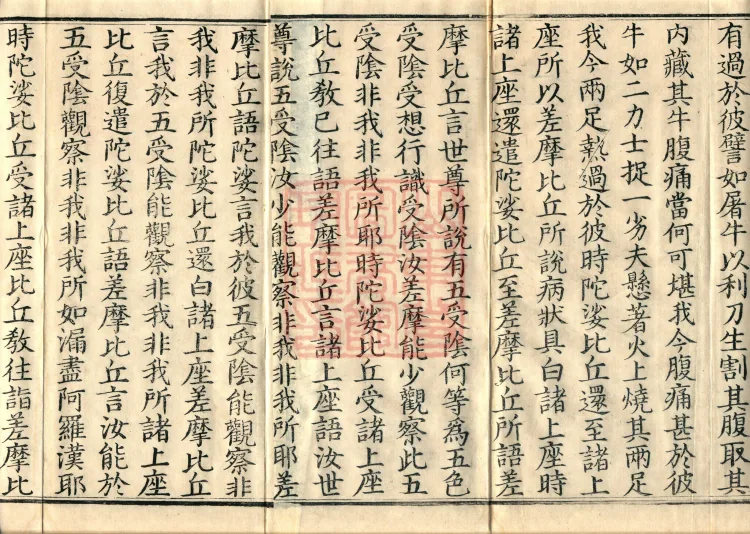 有過於彼譬如屠牛以利刀生割其腹取其
内藏其牛腹痛當何可堪我今腹痛甚於彼
牛如二力士捉一劣夫懸著火上燒其兩足
我今兩足熱過於彼時陀娑比丘還至諸上
座所以差摩比丘所說病狀具白諸上座時
諸上座還遣陀娑比丘至差摩比丘所語差
摩比丘言世尊所說有五受陰何等為五色
受陰受想行識受陰汝差摩能少觀察此五
受陰非我非我所耶時陀娑比丘受諸上座
比丘教已往語差摩比丘言諸上座語汝世
尊說五受陰汝少能觀察非我非我所耶差
摩比丘語陀娑言我於彼五受陰能觀察非
我非我所陀娑比丘還白諸上座差摩比丘
言我於五受陰能觀察非我非我所諸上座
比丘復遣陀娑比丘語差摩比丘言汝能於
五受陰觀察非我非我所如漏盡阿羅漢耶
時陀娑比丘受諸上座比丘教往詣差摩比